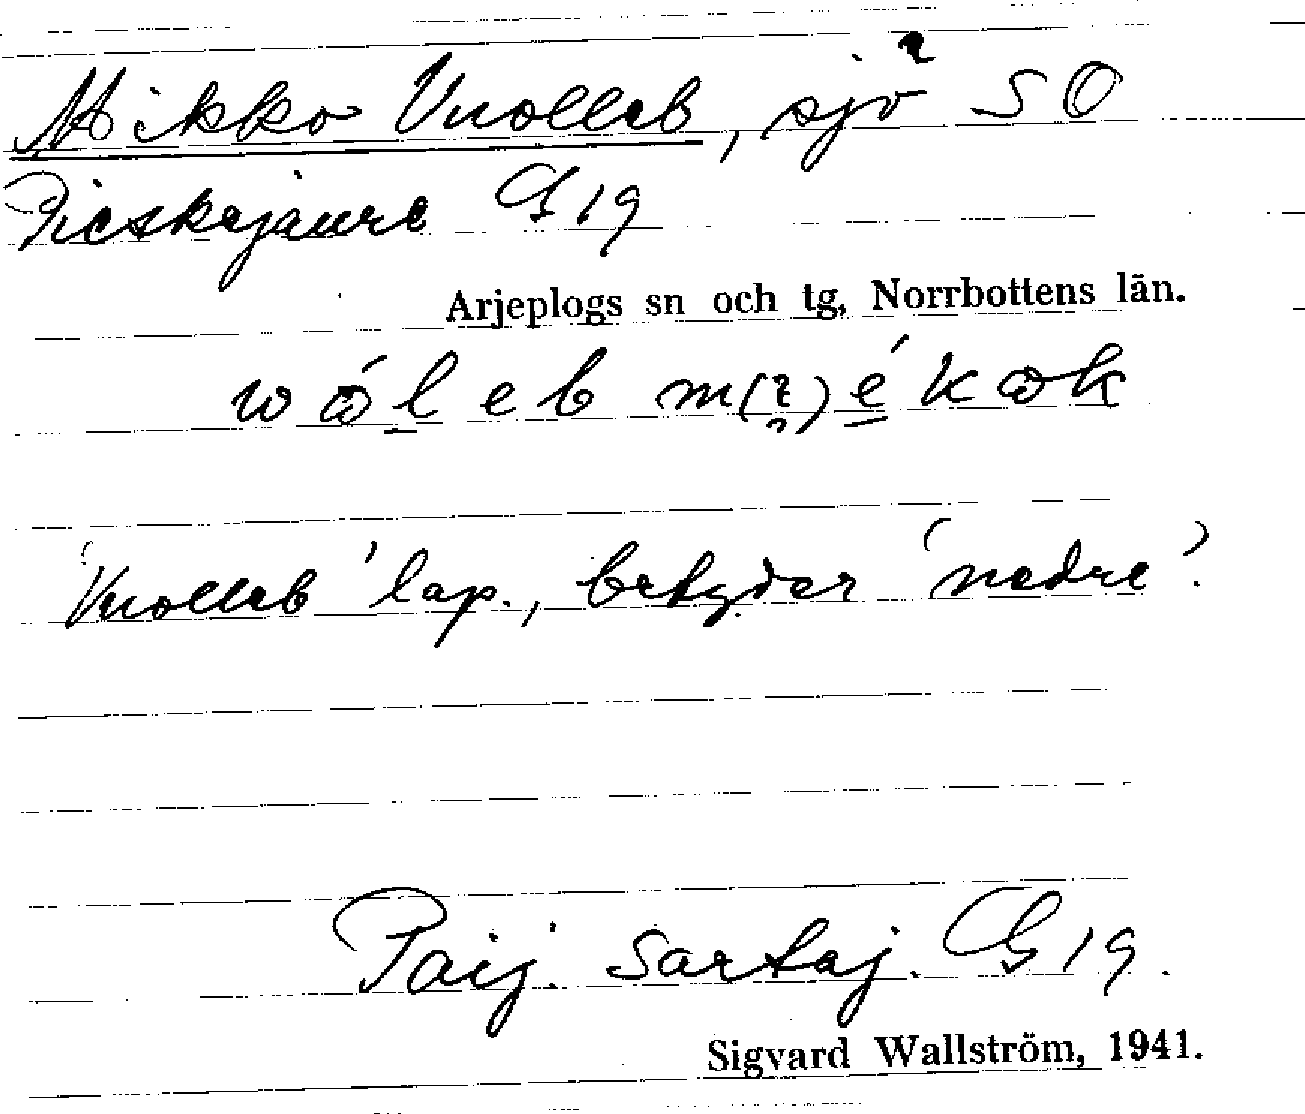 Mikko Vuolleb, sjö SO
Pieskejaure G 19
Arjeplogs sn och tg, Norrbottens län.
'Vuolleb' lap., betyder 'nedre'.
Paij. Sartaj. G 19.
Sigvard Wallström, 1941.